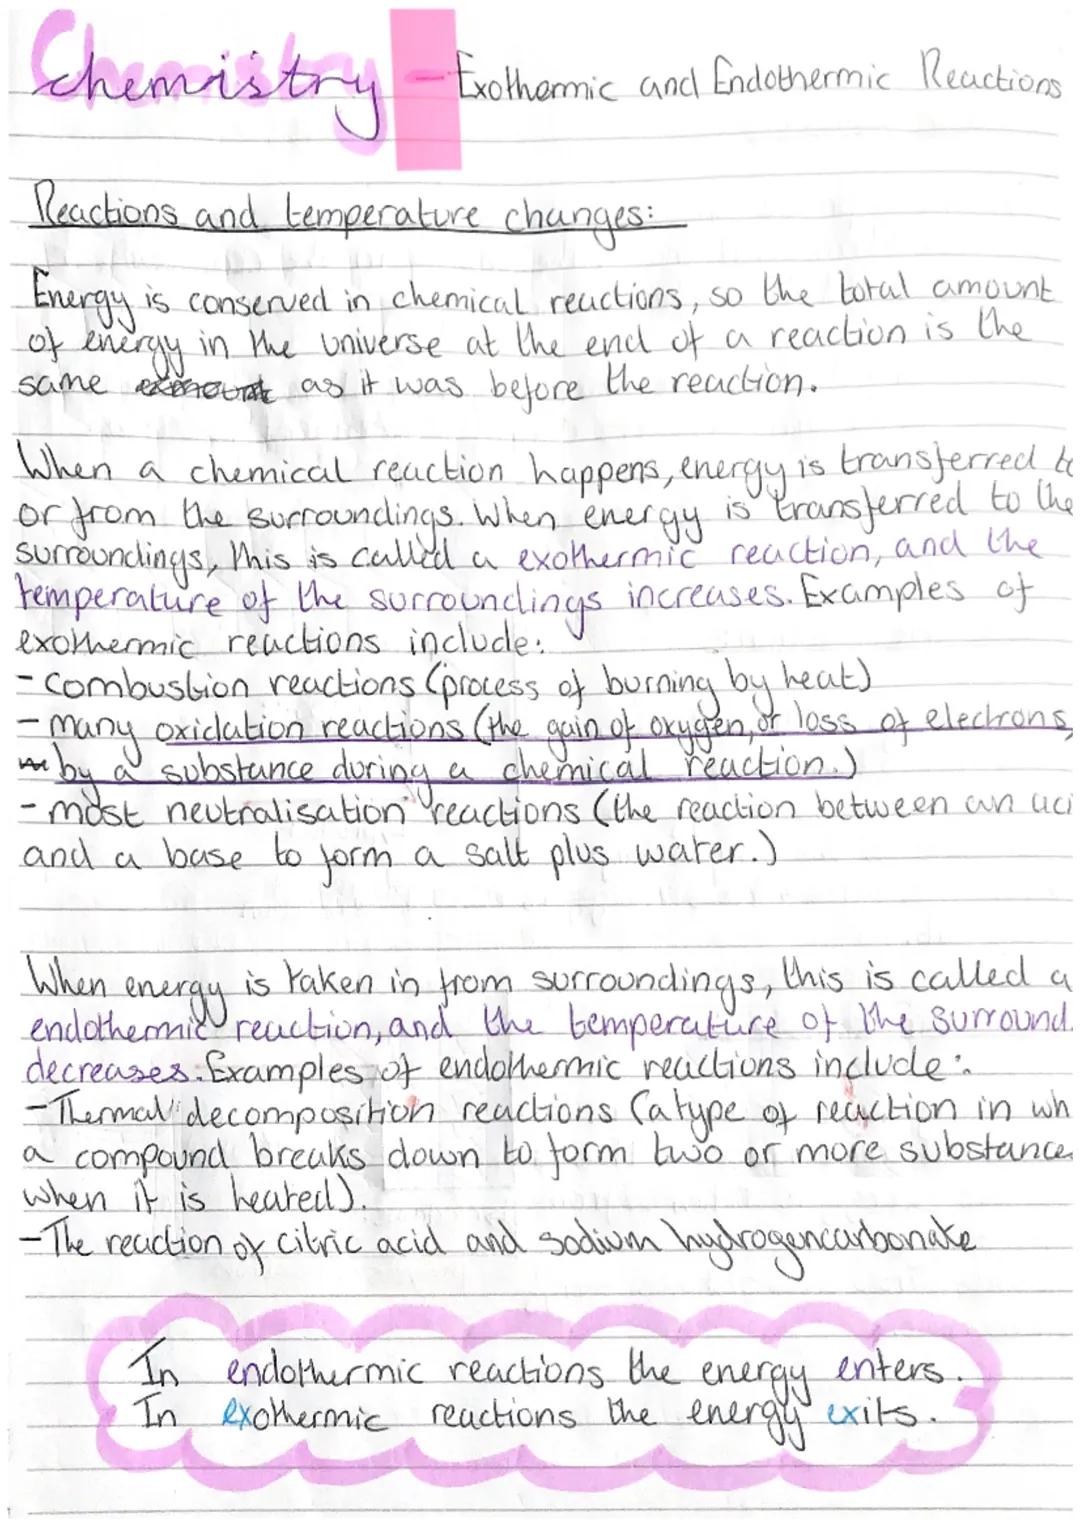 Chemistry - Exothermic and Endothermic Reactions
Reactions and temperature changes:
Energy is conserved in chemical reactions, so the total amount
of energy in the universe at the end of a reaction is the
same as it was before the reaction.
When a chemical reaction happens, energy is transferred to
or from the surroundings. When energy is transferred to the
surroundings, this is called a exothermic reaction, and the
temperature of the surroundings increases. Examples of
exothermic reactions include:
- Combustion reactions (process of burning by heat)
- many oxidation reactions (the gain of oxygen, or loss of electrons,
by a substance during a chemical reaction.)
- most neutralisation reactions (the reaction between an aci
and a base to form a salt plus water.)
When energy is taken in from surroundings, this is called a
endothermic reaction, and the temperature of the surround
decreases. Examples of endothermic reactions include:
- Thermal decomposition reactions (a type of reaction in wh
a compound breaks down to form two or more substance
when it is heated).
- The reaction of citric acid and sodium hydrogencarbonate
In endothermic reactions the energy enters.
In exothermic reactions the energy exits.